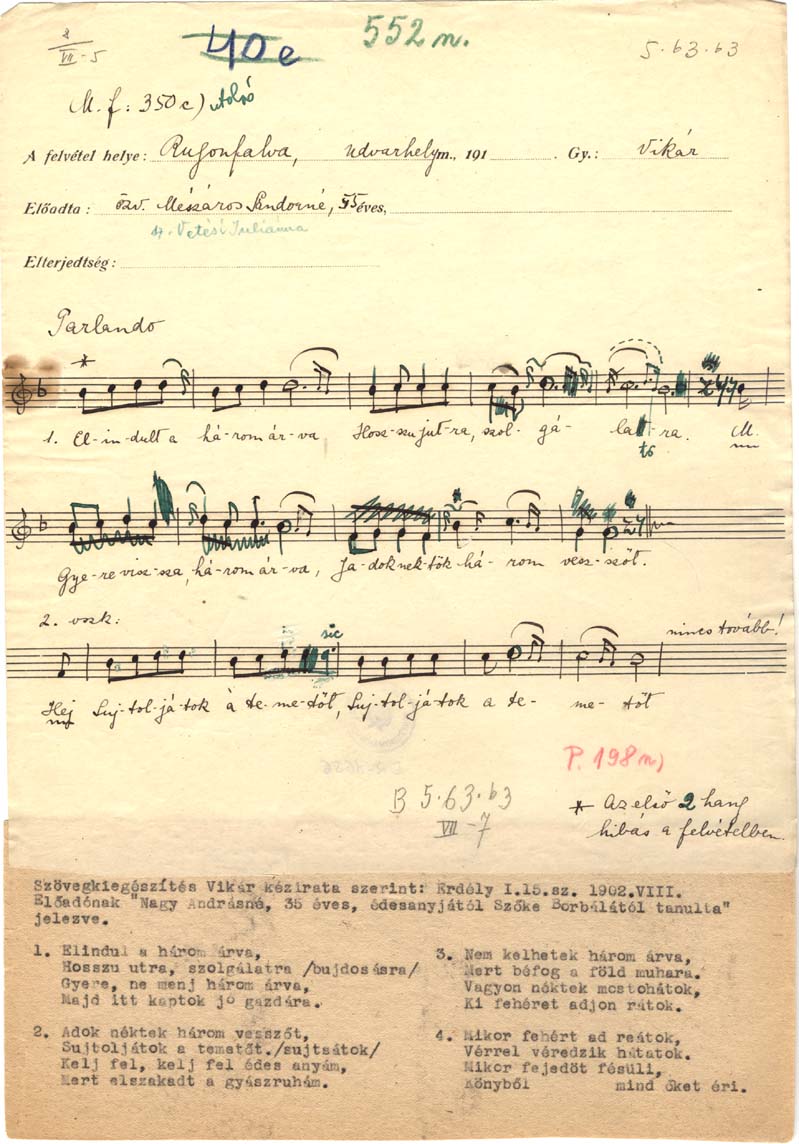 VII-5
40e
552 n.
5.63.63
M. f: 350c) utolsó
A felvétel helye: Rugonfalva, Udvarhelym., 191 . Gy.: Vikár
Előadta: özv. Mészáros Sándorné, éves,
sz. Vetési Juliánna
Elterjedtség:
Parlando
*
1. El-in-dult a há-rom ár-va Hosz-szu jut-ra, szol-gá-lat-ra.
Gye-re visz-sza, há-rom ár-va, Ja-dok nek-tök há-rom vesz-szőt.
2. vszk:
sic
nincs tovább!
Hej Suj-tol-já-tok a te-me-tőt, Suj-tol-já-tok a te-me-tőt
P. 198 n)
B 5.63.63
VII-7
* Az első 2 hang
hibás a felvételben.
Szövegkiegészítés Vikár kézirata szerint: Erdély I.15.sz. 1902.VIII.
Előadónak "Nagy Andrásné, 35 éves, édesanyjától Szőke Borbálától tanulta"
jelezve.
1. Elindul a három árva,
Hosszu utra, szolgálatra /bujdosásra/
Gyere, ne menj három árva,
Majd itt kaptok jó gazdára.
2. Adok néktek három vesszőt,
Sujtoljátok a temetőt./sujtsátok/
Kelj fel, kelj fel édes anyám,
Mert elszakadt a gyászruhám.
3. Nem kelhetek három árva,
Mert béfog a föld muhara.
Vagyon néktek mostohátok,
Ki fehéret adjon rátok.
4. Mikor fehért ad reátok,
Vérrel véredzik hátatok.
Mikor fejedöt fésüli,
Könyből mind őket éri.